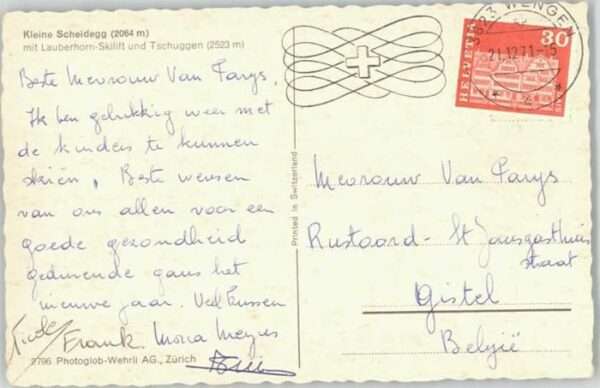 Kleine Scheidegg (2064 m)
mit Lauberhorn-Skilift und Tschuggen (2523 m)
Beste Mevrouw Van Parys,
Ik ben gelukkig weer met
de kinders te kunnen
skiën, Beste wensen
van ons allen voor een
goede gezondheid
gedurende gans het
nieuwe jaar. Veel kussen
Frank Monca Meyers
9796 Photoglob-Wehrli AG., Zürich
Printed in Switzerland
3823 WENGEN
21.12.71-15
HELVETIA
30
Mevrouw Van Parys
Rustoord - St
straat
Gistel
België